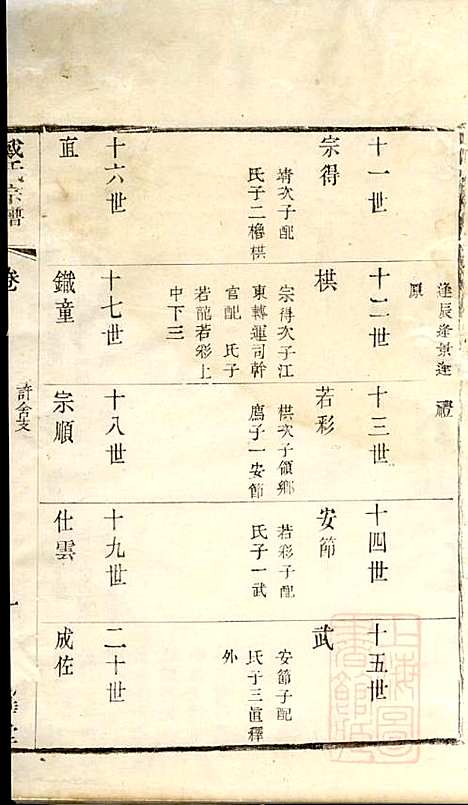 逢辰逢景逢
原
禮
十一世
十二世
十三世
十四世
十五世
宗得
靖次子配
氏子二櫓栱
栱
宗得次子江
東轉運司幹
官配 氏子
若龍若彩上
中下三
若彩
栱次子領鄉
薦子一安節
安節
若彩子配
氏子一武
武
安節子配
氏子三直釋
外
十六世
十七世
十八世
十九世
二十世
直
鐡童
宗順
仕雲
成佐
戴氏宗譜
卷
許舍支
一